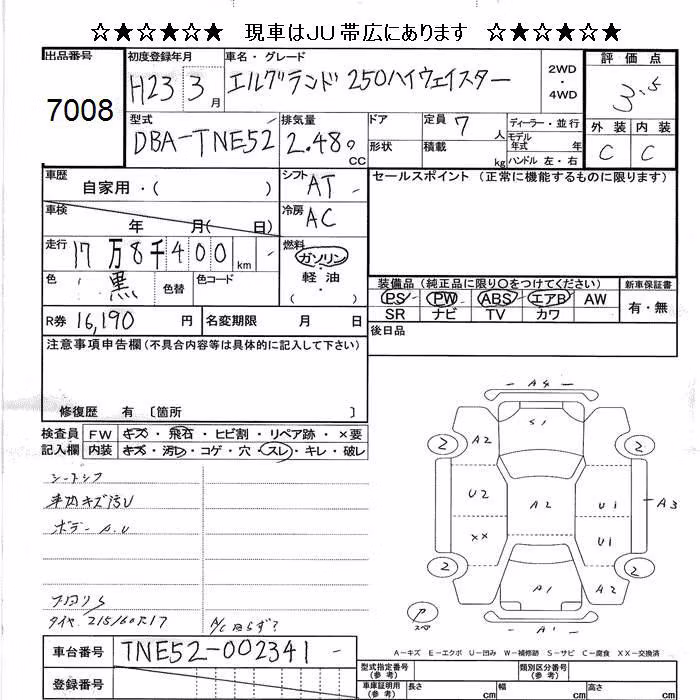 ☆★☆★☆★ 現車はJU帯広にあります ☆★☆★☆★
出品番号
7008
初度登録年月
H23 3月
車名・グレード
エルグランド 250ハイウェイスター
2WD・4WD
評価点
3.5
型式
DBA-TNE52
排気量
2.48 cc
ドア
形状
定員 7人
積載 kg
ディーラー・並行
モデル年式 年
ハンドル 左・右
外装 内装
C C
車歴
自家用・( )
シフト AT
車検
年 月( 日)
冷房 AC
走行
17万8千400km
燃料
ガソリン・軽油・( )
色 黒
色替
色コード
R券 16,190円
名変期限 月 日
セールスポイント (正常に機能するものに限ります)
装備品 (純正品に限り〇をつけてください)
PS PW ABS エアB AW
SR ナビ TV カワ
新車保証書
有・無
後日品
注意事項申告欄(不具合内容等は具体的に記入して下さい)
修復歴 有 〔箇所 〕
検査員記入欄
FW キズ・飛石・ヒビ割・リペア跡・×要
内装 キズ・汚レ・コゲ・穴・スレ・キレ・破レ
車内キズ汚U
ボデー A.U
タイヤ 215/60R17
A4
S1
A2
2 2
U2 A2 U1
A3
XX U1
2 2
A1 A2
A1
スペア
A-キズ E-エクボ U-凹み W-補修跡 S-サビ C-腐食 XX-交換済
車台番号 TNE52-002341
登録番号
型式指定番号(参考)
類別区分番号(参考)
車庫証明用(参考)
長さ cm
幅 cm
高さ cm